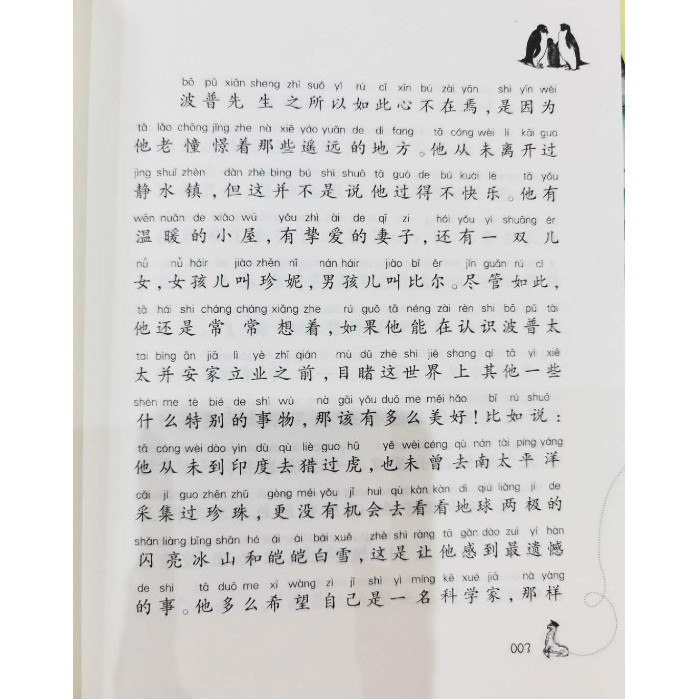 bō pǔ xiān sheng zhī suǒ yǐ rú cǐ xīn bú zài yān shì yīn wèi
波普先生之所以如此心不在焉，是因为
tā lǎo chōng jǐng zhe nà xiē yáo yuǎn de dì fang tā cóng wèi lí kāi guo
他老憧憬着那些遥远的地方。他从未离开过
jìng shuǐ zhèn dàn zhè bìng bú shì shuō tā guò de bú kuài lè tā yǒu
静水镇，但这并不是说他过得不快乐。他有
wēn nuǎn de xiǎo wū yǒu zhì ài de qī zi hái yǒu yì shuāng ér
温暖的小屋，有挚爱的妻子，还有一双儿
nǚ nǚ háir jiào zhēn nī nán háir jiào bǐ ěr jǐn guǎn rú cǐ
女，女孩儿叫珍妮，男孩儿叫比尔。尽管如此，
tā hái shi cháng cháng xiǎng zhe rú guǒ tā néng zài rèn shi bō pǔ tài
他还是常常想着，如果他能在认识波普太
tai bìng ān jiā lì yè zhī qián mù dǔ zhè shì jiè shang qí tā yì xiē
太并安家立业之前，目睹这世界上其他一些
shén me tè bié de shì wù nà gāi yǒu duō me měi hǎo bǐ rú shuō
什么特别的事物，那该有多么美好！比如说：
tā cóng wèi dào yìn dù qù liè guo hǔ yě wèi céng qù nán tài píng yáng
他从未到印度去猎过虎，也未曾去南太平洋
cǎi jí guo zhēn zhū gèng méi yǒu jī huì qù kàn kàn dì qiú liǎng jí de
采集过珍珠，更没有机会去看看地球两极的
shǎn liàng bīng shān hé ái ái bái xuě zhè shì ràng tā gǎn dào zuì yí hàn
闪亮冰山和皑皑白雪，这是让他感到最遗憾
de shì tā duō me xī wàng zì jǐ shì yì míng kē xué jiā nà yàng
的事。他多么希望自己是一名科学家，那样
003